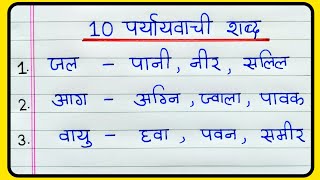 10 पर्यायवाची शब्द
1. जल - पानी, नीर, सलिल
2. आग - अग्नि, ज्वाला, पावक
3. वायु - हवा, पवन, समीर